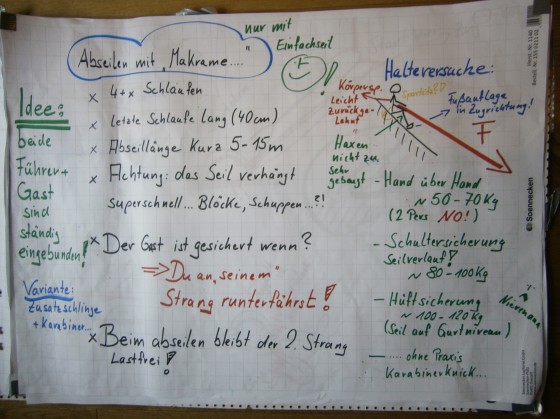 Abseilen mit „Makrame...."
nur mit
Einfachseil
Idee:
beide
Führer+
Gast
sind
ständig
eingebunden!
Variante:
Zusatzschlinge
+ Karabiner...
x 4+x Schlaufen
x letzte Schlaufe lang (40cm)
x Abseillänge kurz 5-15m
x Achtung: das Seil verhängt
superschnell... Blöcke, Schuppen...!
x Der Gast ist gesichert wenn?
⇒ Du an „seinem"
Strang runterfährst!
x Beim abseilen bleibt der 2. Strang
Lastfrei!
Haltversuche:
Körpersp.
Leicht
zurückge-
Lehnt
Haxen
nicht zu
sehr
gebeugt
Fußauflage
in Zugrichtung!
F
- Hand über Hand
~ 50-70 Kg
(2 Pers NO!)
- Schultersicherung
Seilverlauf!
~ 80-100Kg
- Hüftsicherung
~ 100-120 Kg
(Seil auf Gurtniveau)
- .... ohne Praxis
Karabinerknick...
Soennecken